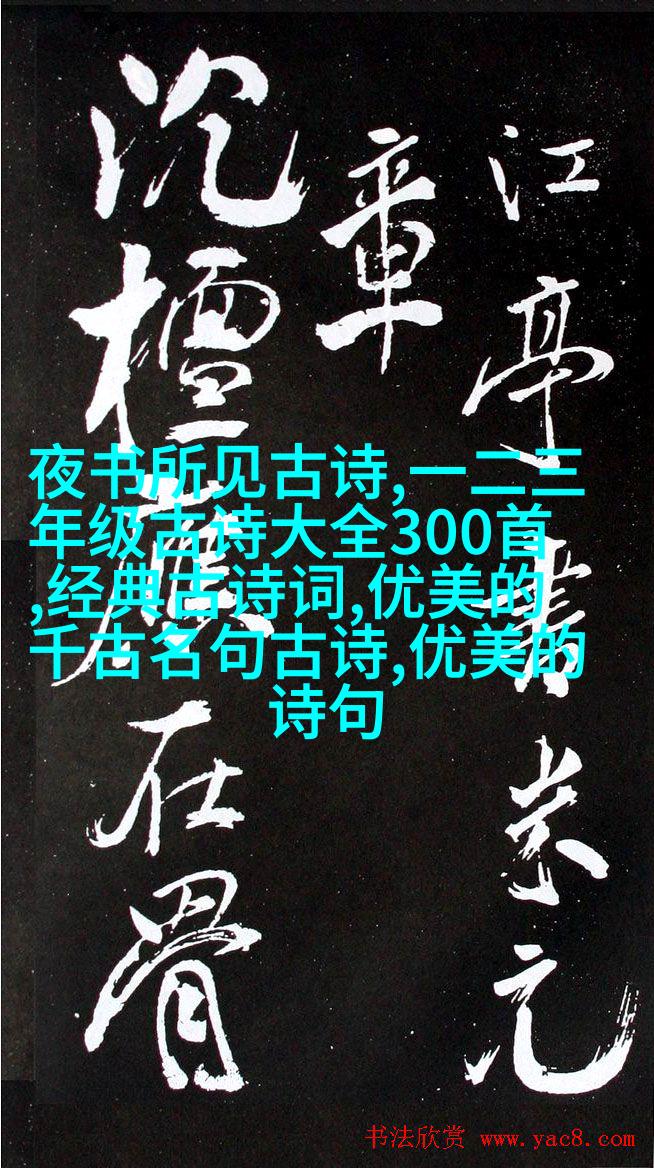 江亭書米元
章
沉檀在骨
夜书所见古诗,一二三
年级古诗大全300首
,经典古诗词,优美的
千古名句古诗,优美的
诗句
书法欣赏 www.yac8.com